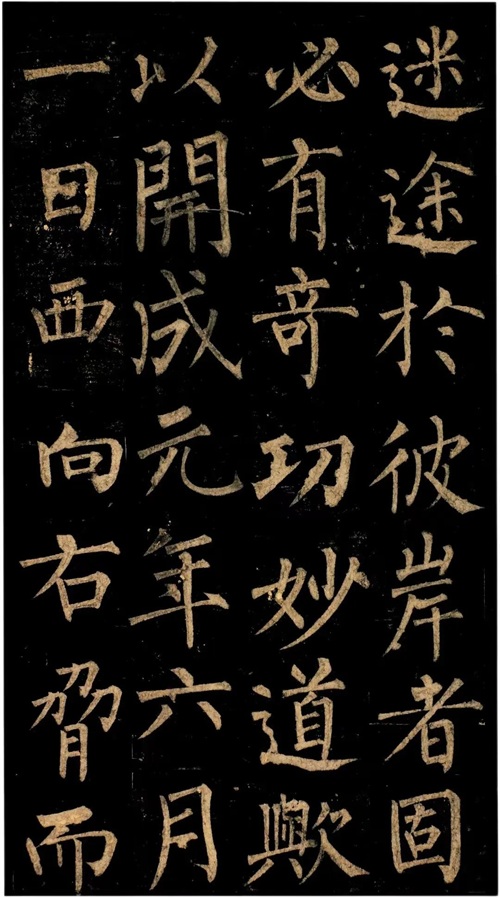 迷途於彼岸者固
必有竒功妙道歟
以開成元年六月
一日西向右脅而